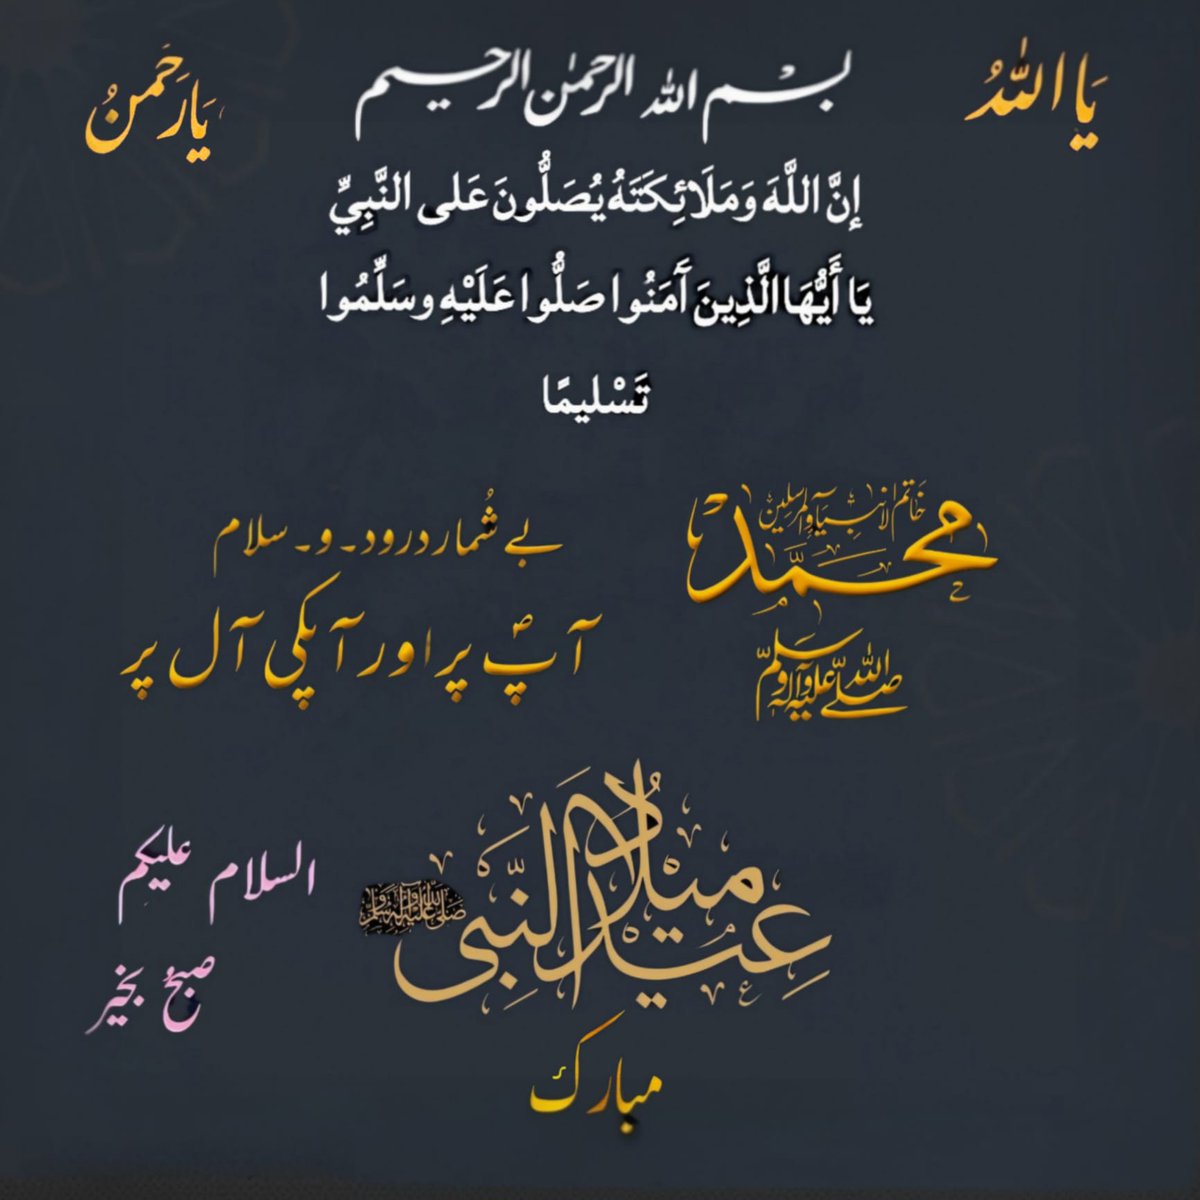 يَا اللّٰهُ
بسم الله الرحمٰن الرحيم
يَارَحَمنُ
إنَّ اللَّهَ وَمَلَائِكَتَهُ يُصَلُّونَ عَلى النَّبِيِّ
يَا أَيُّهَا الَّذِينَ آَمَنُوا صَلُّوا عَلَيْهِ وسَلِّمُوا
تَسْليمًا
خاتم الانبیآء والمرسلین
محمَّد
صلی اللہ علیہ وآلہ وسلم
بے شُمار درود۔و۔سلام
آپؐ پر اور آپکی آل پر
عید میلاد النّبی
صلی اللہ علیہ وآلہ وسلم
مبارک
السلام علیکم
صبح بخیر